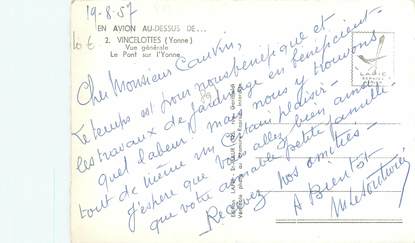 19-8-57
10 €
EN AVION AU-DESSUS DE...
2. VINCELOTTES (Yonne)
Vue générale
Le Pont sur l'Yonne
LAPIE
Cher Monsieur Cauvin,
Le temps est pour nous bénéfique et
les travaux de jardinage en bénéficient -
quel labeur ! mais nous y trouvons
tout de même un certain plaisir -
J'espère que vous allez bien ainsi
que votre aimable petite famille
Recevez nos amitiés -
A Bientôt